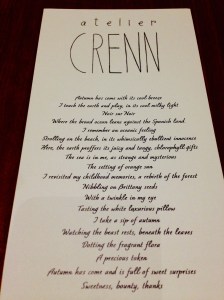 atelier
CRENN
Autumn has come with its cool breeze
I touch the earth and play, in its cool milky light
Noir sur Noir
Where the broad ocean leans against the Spanish land
I remember an oceanic feeling
Strolling on the beach, in its whimsically shallened innocence
Here, the earth proffers its juicy and tangy, chlorophyll gifts
The sea is in me, so strange and mysterious
The setting of orange sun
I revisited my childhood memories, a rebirth of the forest
Nibbling on Brittany seeds
With a twinkle in my eye
Tasting the white luxurious pillow
I take a sip of autumn
Watching the beast rests, beneath the leaves
Dotting the fragrant flora
A precious token
Autumn has come and is full of sweet surprises
Sweetness, bounty, thanks